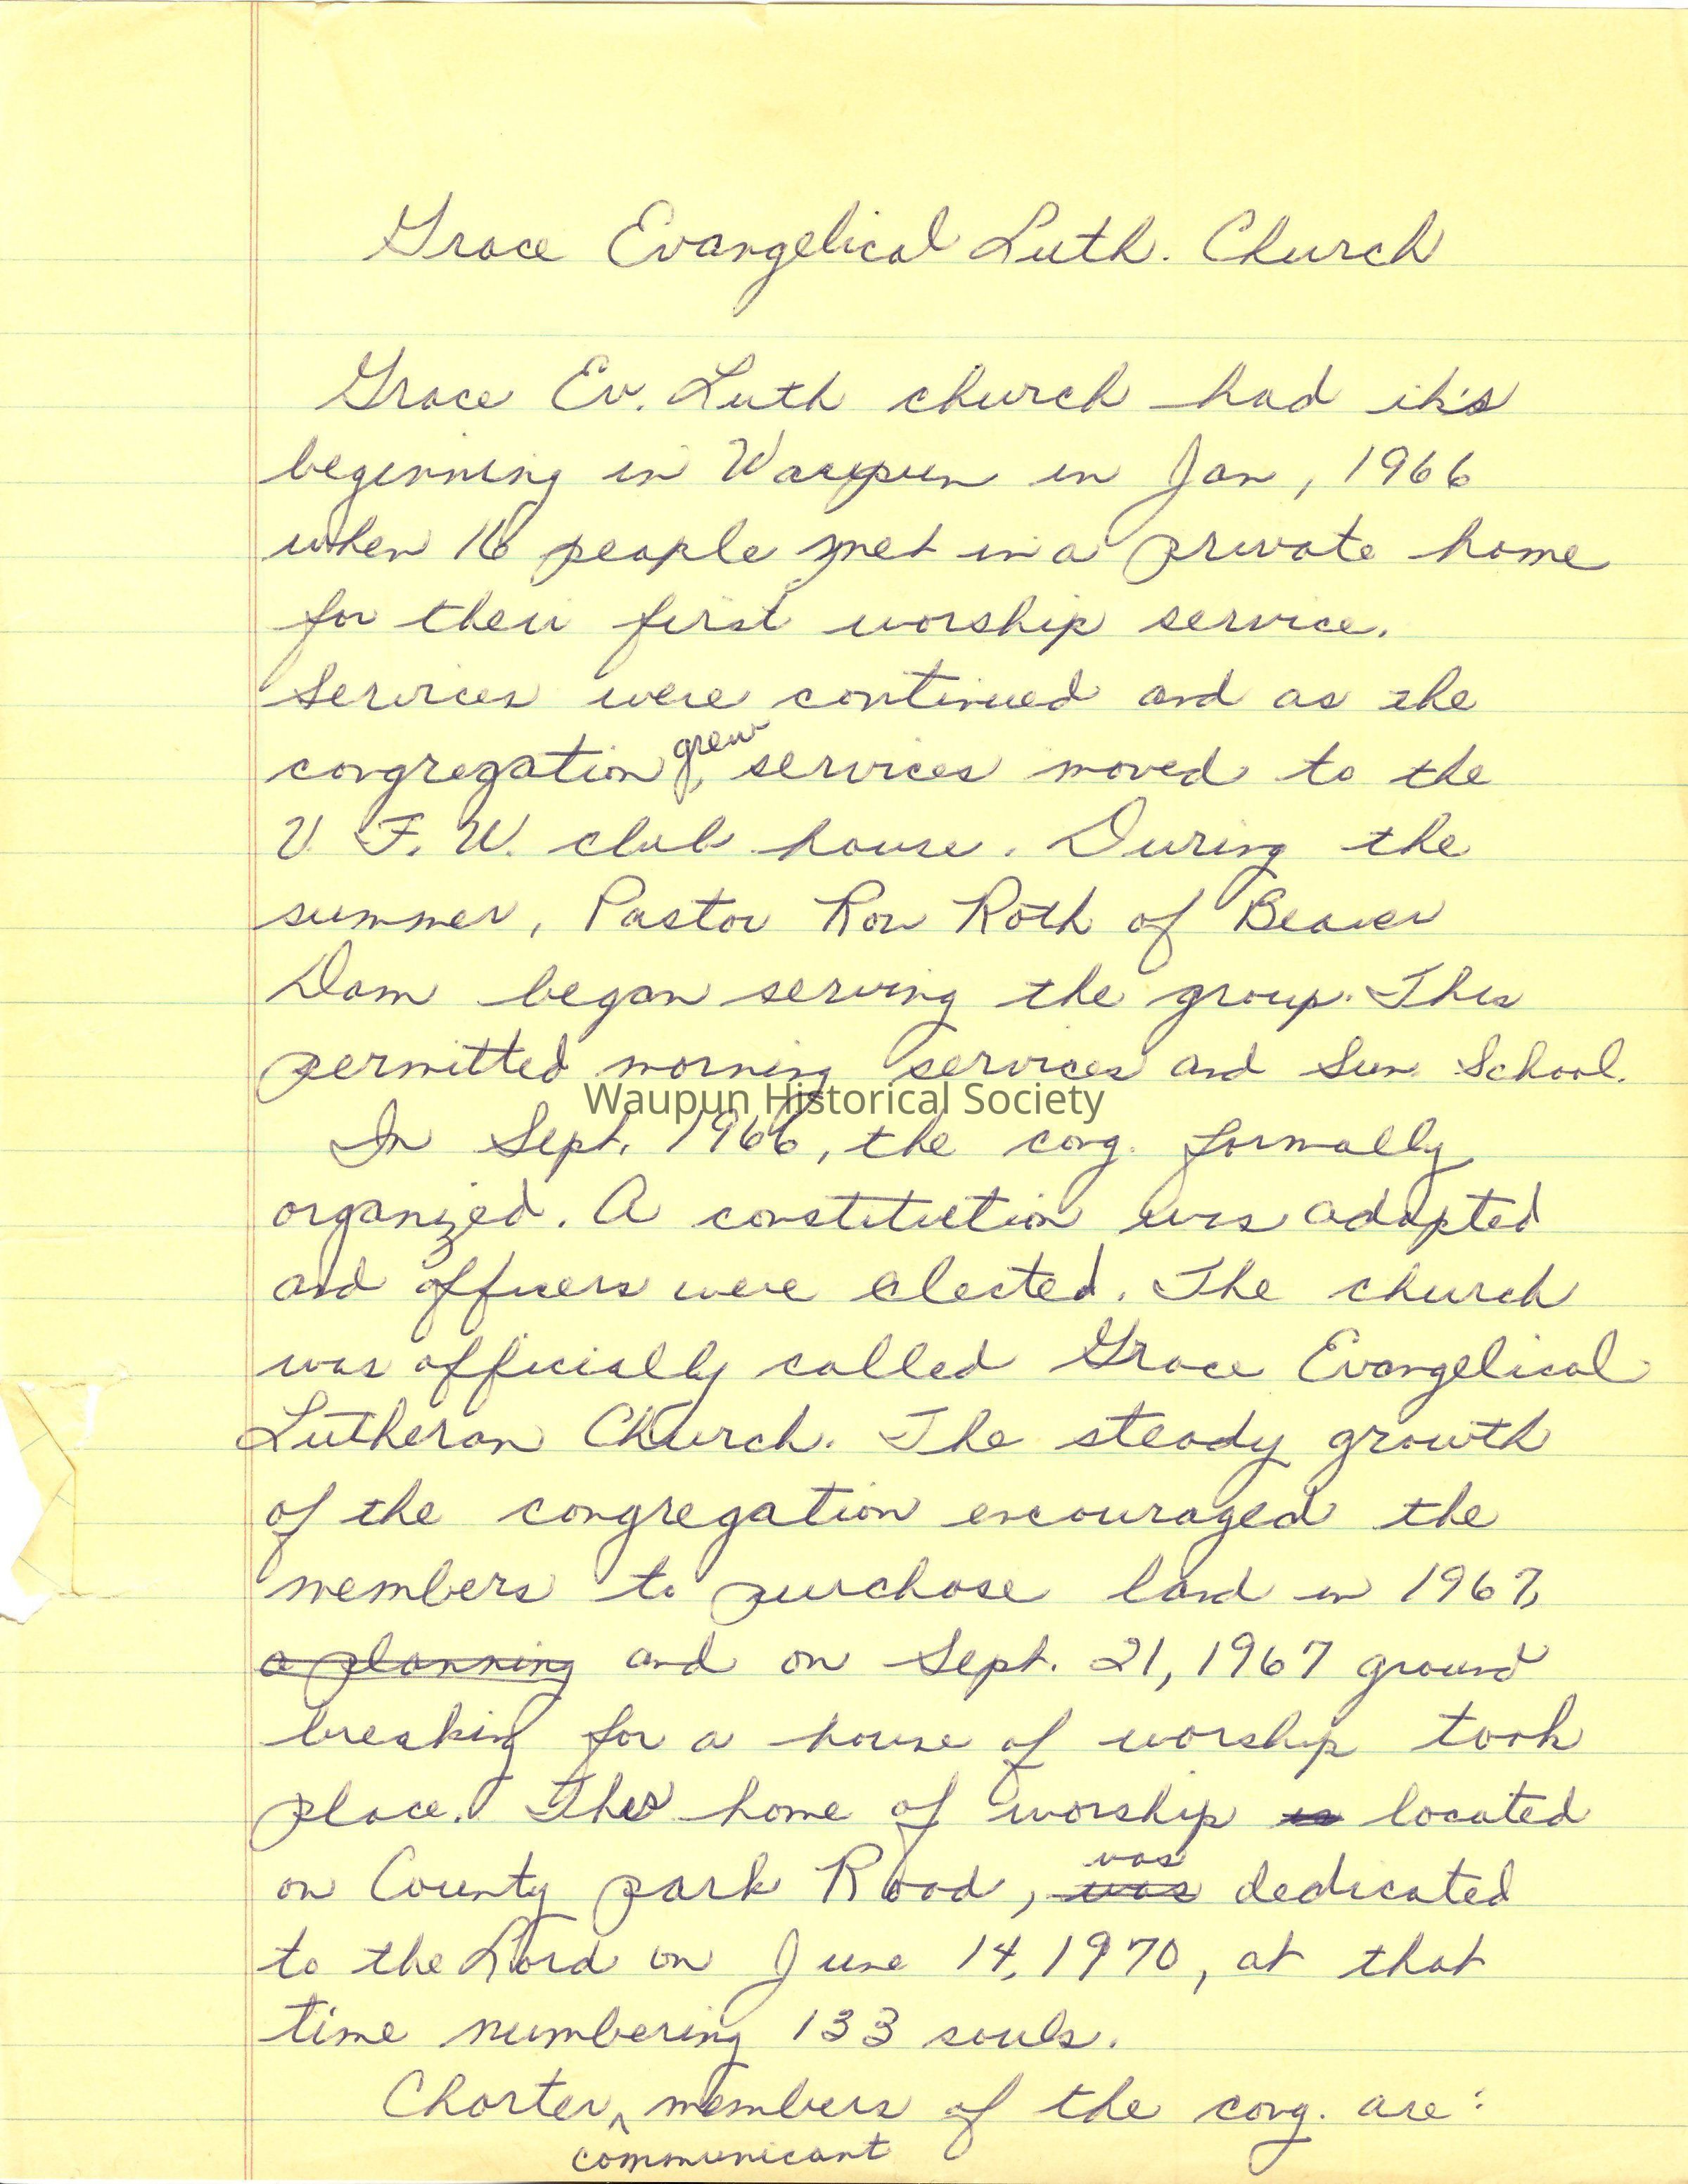 Grace Evangelical Luth. Church
Grace Ev. Luth church had it's
beginning in Waupun in Jan, 1966
when 16 people met in a private home
for their first worship service.
Services were continued and as the
grew
congregation, services moved to the
V. F. W. club house. During the
summer, Pastor Ron Roth of Beaver
Dam began serving the group. This
permitted morning services and Sun. School.
Waupun Historical Society
In Sept. 1966, the cong. formally
organized. A constitution was adopted
and officers were elected. The church
was officially called Grace Evangelical
Lutheran Church. The steady growth
of the congregation encouraged the
members to purchase land in 1967,
a planning and on Sept. 21, 1967 ground
breaking for a house of worship took
place. This home of worship is located
was
on County park Road, was dedicated
to the Lord on June 14, 1970, at that
time numbering 133 souls.
Charter ^ members of the cong. are:
communicant